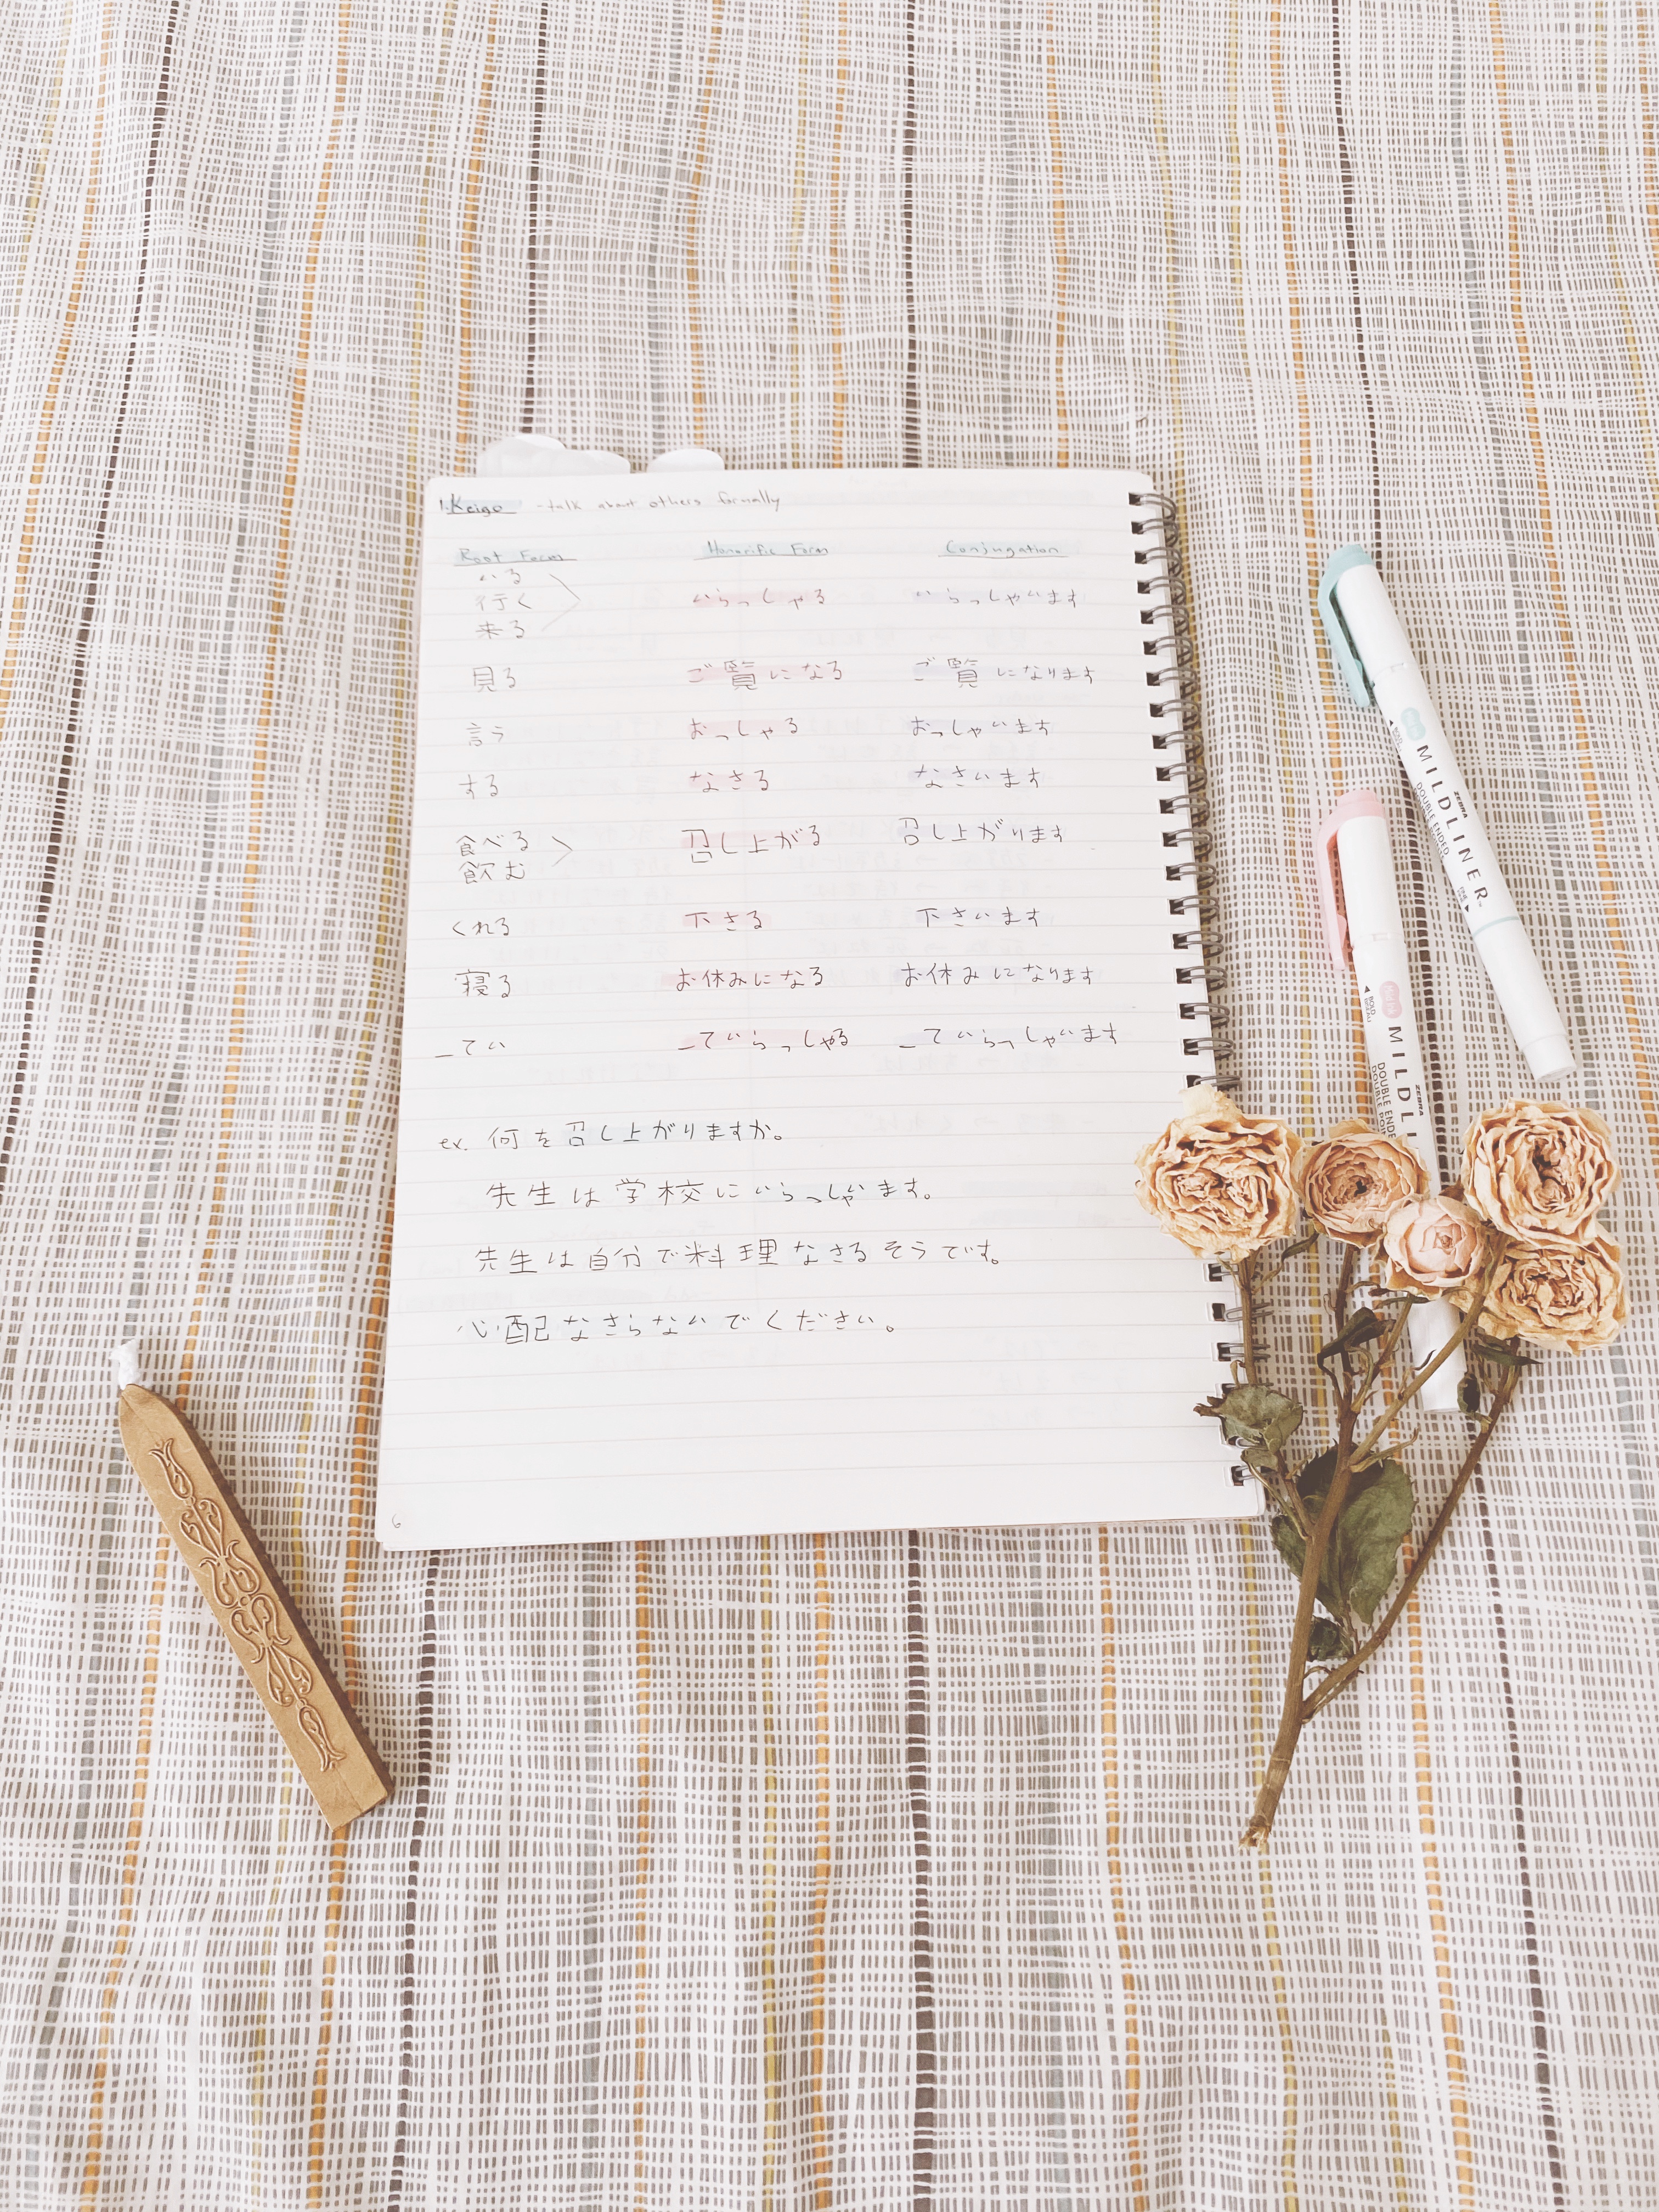 1. Keigo - talk about others formally
Root Form Honorific Form Conjugation
いる
行く いらっしゃる いらっしゃいます
来る
見る ご覧になる ご覧になります
言う おっしゃる おっしゃいます
する なさる なさいます
食べる 召し上がる 召し上がります
飲む
くれる 下さる 下さいます
寝る お休みになる お休みになります
_てい _ていらっしゃる _ていらっしゃいます
ex. 何を召し上がりますか。
先生は学校にいらっしゃいます。
先生は自分で料理なさるそうです。
心配なさらないでください。
6
ZEBRA
MILDLINER
DOUBLE ENDED
BOLD
ZEBRA
MILDL
DOUBLE ENDE
BOLD